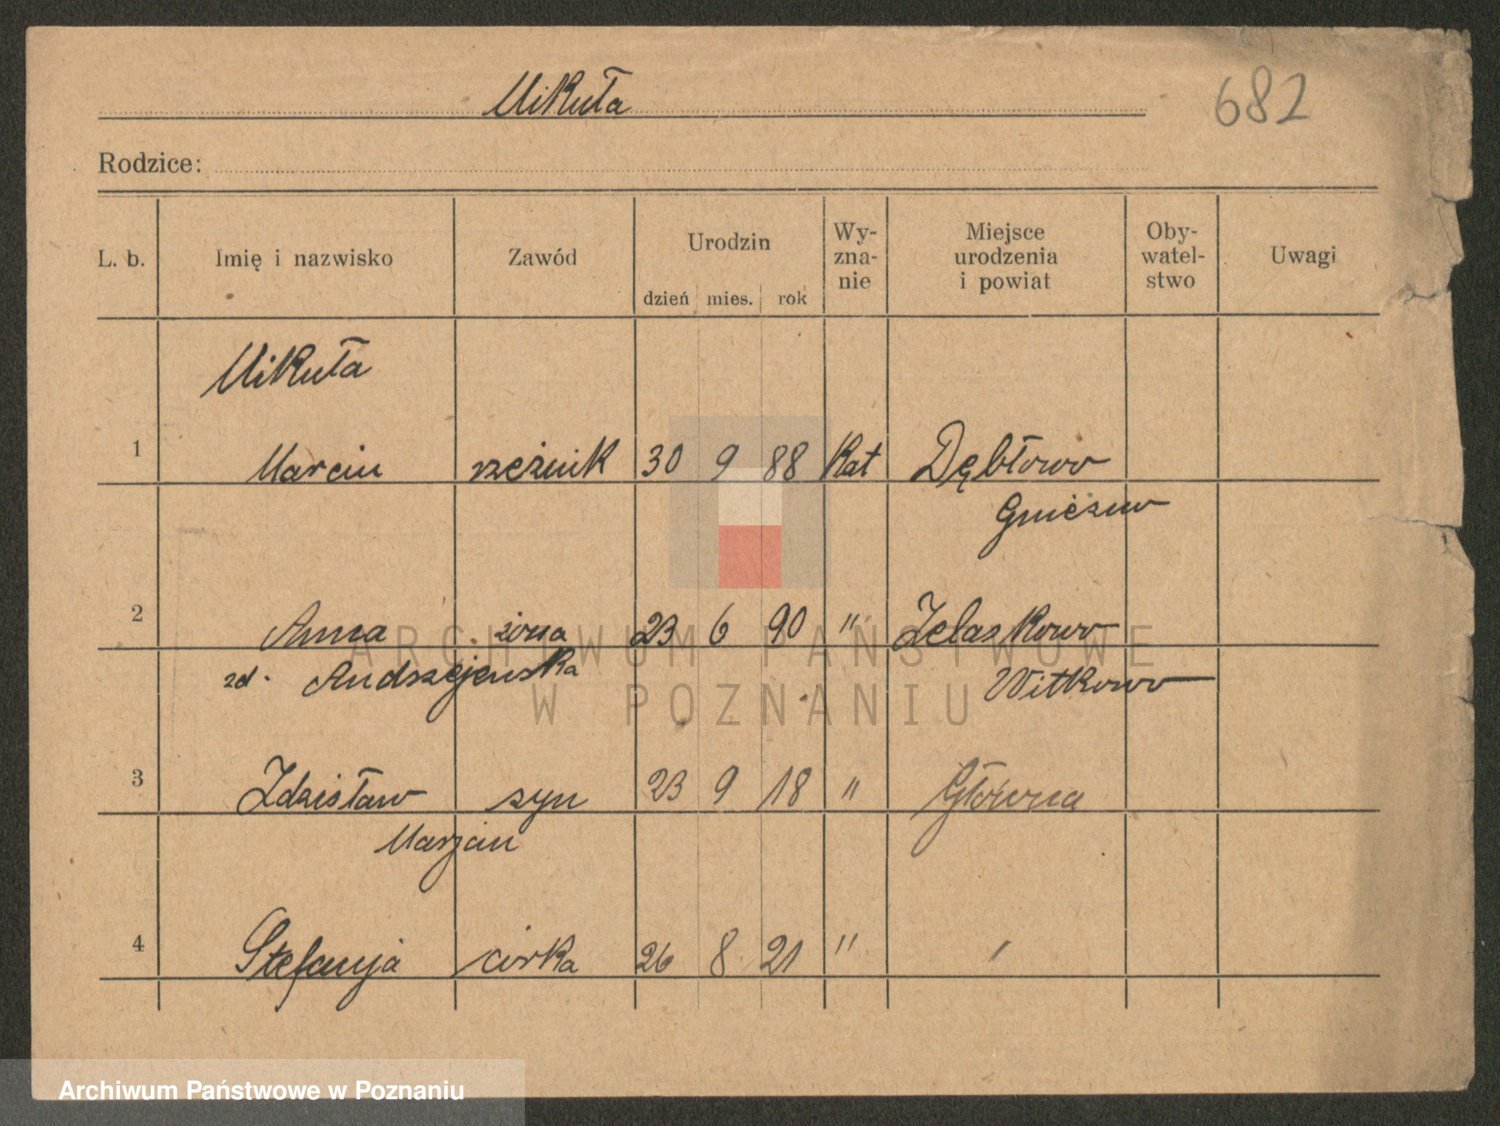 Mikuła
682
Rodzice:
L. b. Imię i nazwisko Zawód Urodzin dzień mies. rok Wy-zna-nie Miejsce urodzenia i powiat Oby-watel-stwo Uwagi
Mikuła
1 Marcin rzeźnik 30 9 88 Kat Dębłowo
Gniezno
2 Anna żona 23 6 90 " Żelaskowo
zd. Andrzejewska Witkowo
3 Zdzisław syn 23 9 18 " Główna
Marjan
4 Stefanja córka 26 8 21 " "
ARCHIWUM PAŃSTWOWE
W POZNANIU
Archiwum Państwowe w Poznaniu